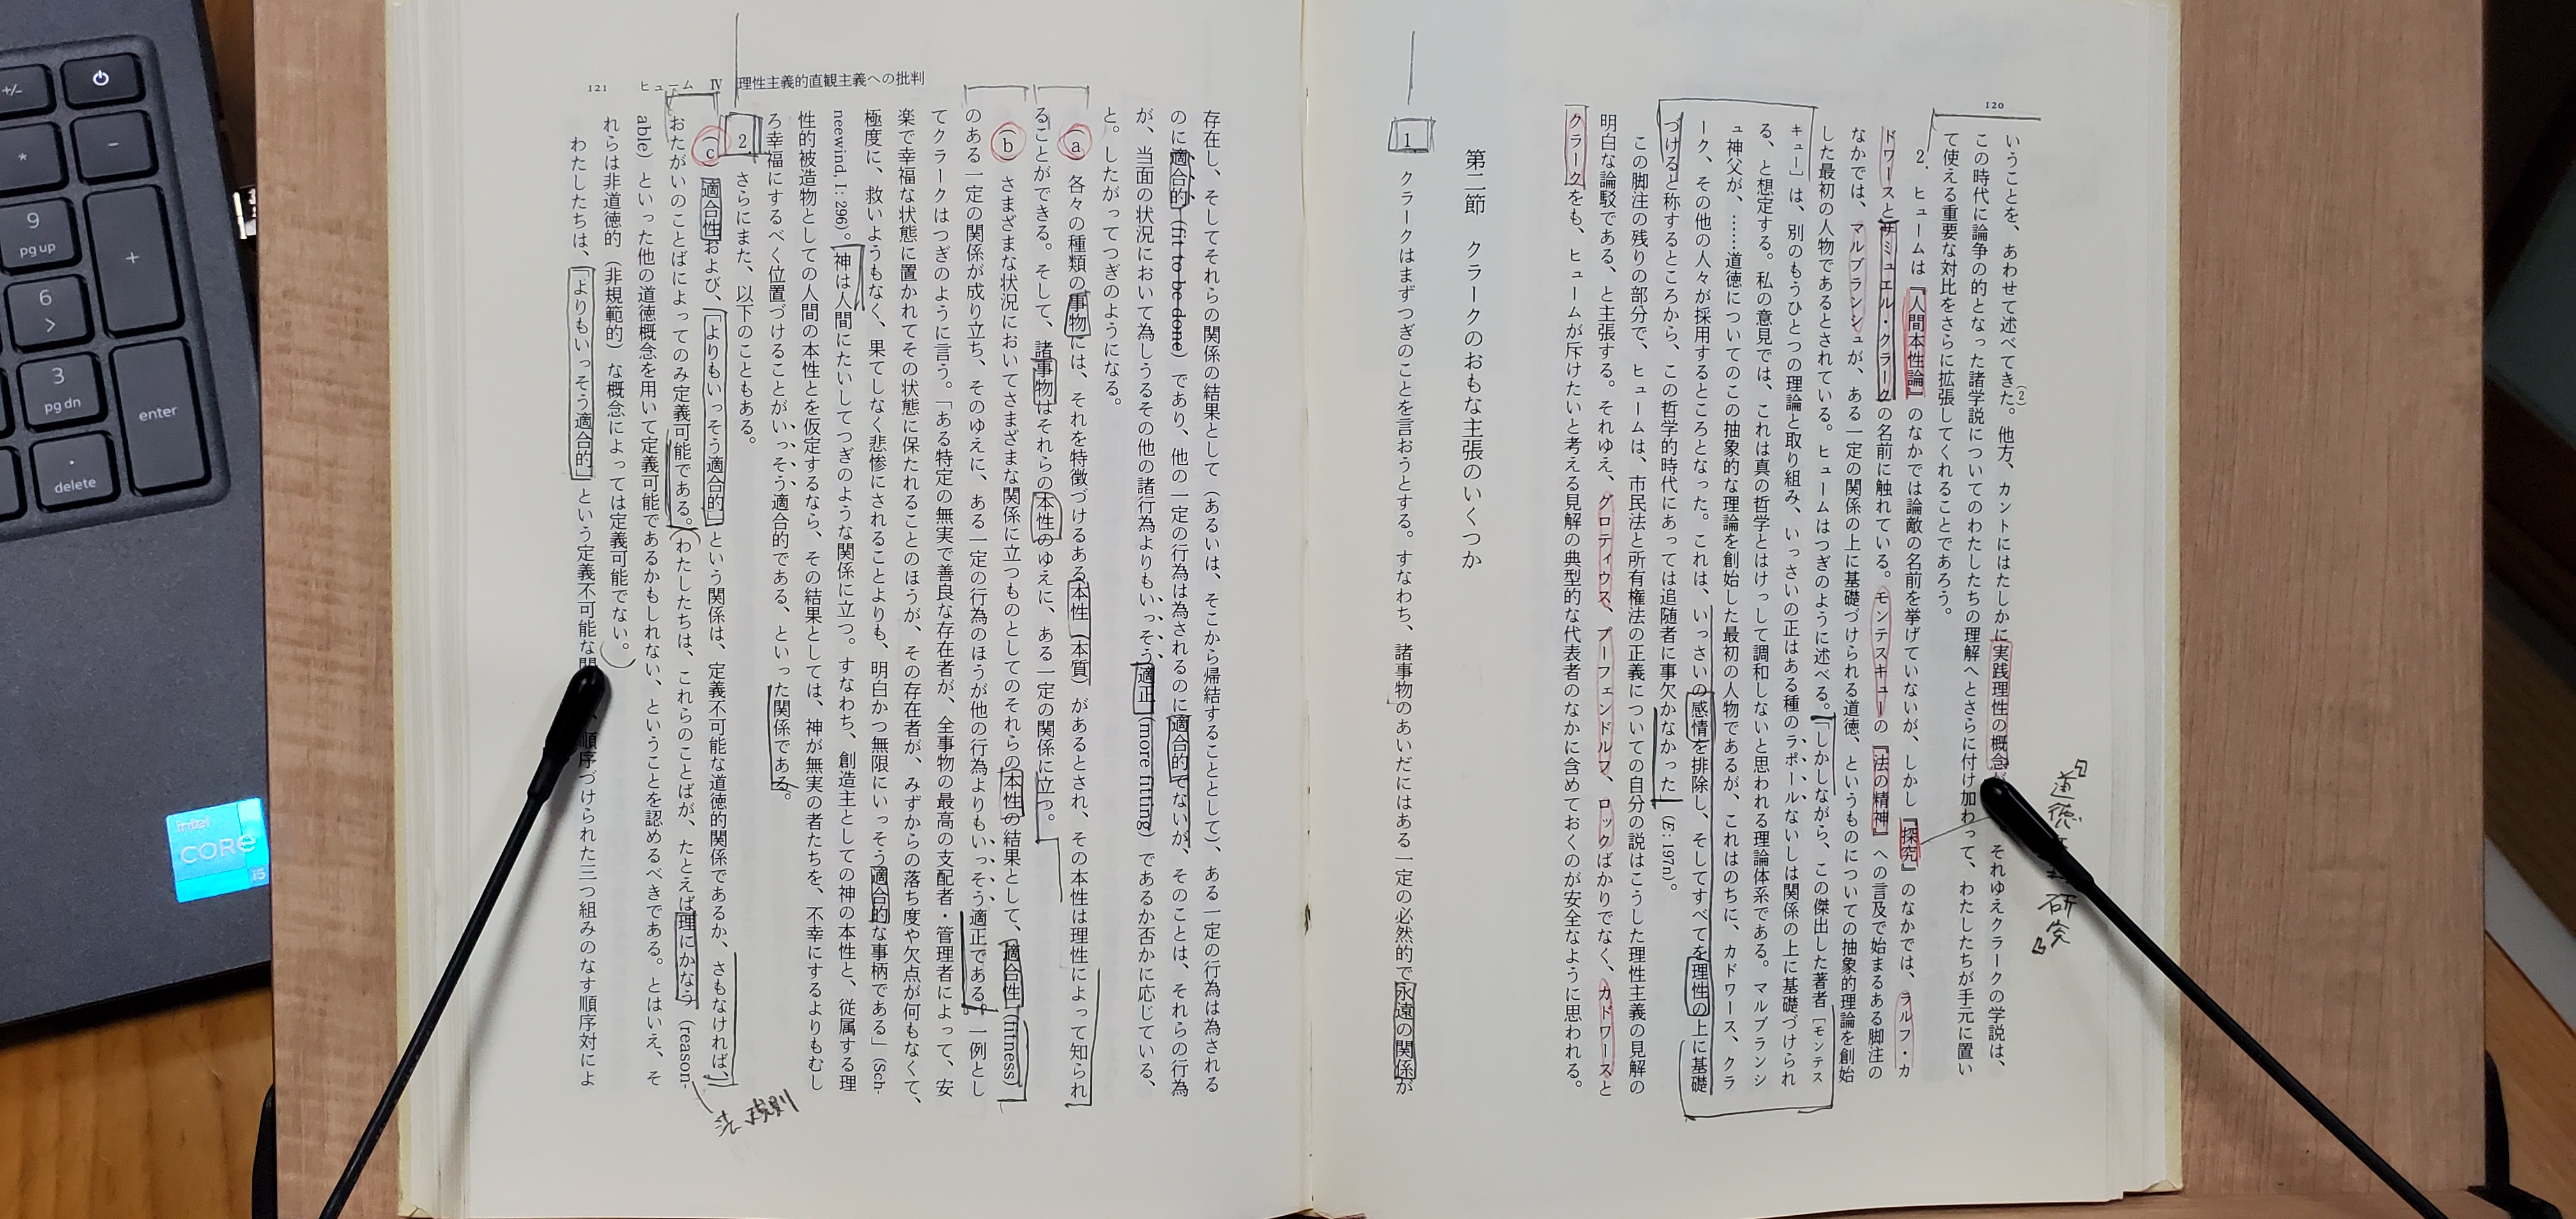 120
いうことを、あわせて述べてきた。(2)他方、カントにはたしかに実践理性の概念が それゆえクラークの学説は、
この時代に論争の的となった諸学説についてのわたしたちの理解へとさらに付け加わって、わたしたちが手元に置い
て使える重要な対比をさらに拡張してくれることであろう。
2. ヒュームは『人間本性論』のなかでは論敵の名前を挙げていないが、しかし『探究』のなかでは、ラルフ・カ
ドワースとサミュエル・クラークの名前に触れている。モンテスキューの『法の精神』への言及で始まるある脚注の
なかでは、マルブランシュが、ある一定の関係の上に基礎づけられる道徳、というものについての抽象的理論を創始
した最初の人物であるとされている。ヒュームはつぎのように述べる。「しかしながら、この傑出した著者〔モンテス
キュー〕は、別のもうひとつの理論と取り組み、いっさいの正はある種のラポールないしは関係の上に基礎づけられ
る、と想定する。私の意見では、これは真の哲学とはけっして調和しないと思われる理論体系である。マルブランシ
ュ神父が、……道徳についてのこの抽象的な理論を創始した最初の人物であるが、これはのちに、カドワース、クラ
ーク、その他の人々が採用するところとなった。これは、いっさいの感情を排除し、そしてすべてを理性の上に基礎
づけると称するところから、この哲学的時代にあっては追随者に事欠かなかった」(E: 197n)。
この脚注の残りの部分で、ヒュームは、市民法と所有権法の正義についての自分の説はこうした理性主義の見解の
明白な論駁である、と主張する。それゆえ、グロティウス、プーフェンドルフ、ロックばかりでなく、カドワースと
クラークをも、ヒュームが斥けたいと考える見解の典型的な代表者のなかに含めておくのが安全なように思われる。
第二節 クラークのおもな主張のいくつか
1 クラークはまずつぎのことを言おうとする。すなわち、諸事物のあいだにはある一定の必然的で永遠の関係が
『道徳 研究』
121 ヒューム Ⅳ 理性主義的直観主義への批判
存在し、そしてそれらの関係の結果として(あるいは、そこから帰結することとして)、ある一定の行為は為される
のに適合的(fit to be done)であり、他の一定の行為は為されるのに適合的でないが、そのことは、それらの行為
が、当面の状況において為しうるその他の諸行為よりもいっそう適正(more fitting)であるか否かに応じている、
と。したがってつぎのようになる。
(a) 各々の種類の事物には、それを特徴づけるある本性(本質)があるとされ、その本性は理性によって知られ
ることができる。そして、諸事物はそれらの本性のゆえに、ある一定の関係に立つ。
(b) さまざまな状況においてさまざまな関係に立つものとしてのそれらの本性の結果として、適合性(fitness)
のある一定の関係が成り立ち、そのゆえに、ある一定の行為のほうが他の行為よりもいっそう適正である。一例とし
てクラークはつぎのように言う。「ある特定の無実で善良な存在者が、全事物の最高の支配者・管理者によって、安
楽で幸福な状態に置かれてその状態に保たれることのほうが、その存在者が、みずからの落ち度や欠点が何もなくて、
極度に、救いようもなく、果てしなく悲惨にされることよりも、明白かつ無限にいっそう適合的な事柄である」(Sch-
neewind, I: 296)。神は人間にたいしてつぎのような関係に立つ。すなわち、創造主としての神の本性と、従属する理
性的被造物としての人間の本性とを仮定するなら、その結果としては、神が無実の者たちを、不幸にするよりもむし
ろ幸福にするべく位置づけることがいっそう適合的である、といった関係である。
2. さらにまた、以下のこともある。
(c) 適合性および、「よりもいっそう適合的」という関係は、定義不可能な道徳的関係であるか、さもなければ、
おたがいのことばによってのみ定義可能である。(わたしたちは、これらのことばが、たとえば理にかなう(reason-
able)といった他の道徳概念を用いて定義可能であるかもしれない、ということを認めるべきである。とはいえ、そ
れらは非道徳的(非規範的)な概念によっては定義可能でない。)
わたしたちは、「よりもいっそう適合的」という定義不可能な関 、順序づけられた三つ組みのなす順序対によ
+/-
*
−
9
pg up
+
6
>
3
pg dn
enter
.
delete
intel
CORE
i5